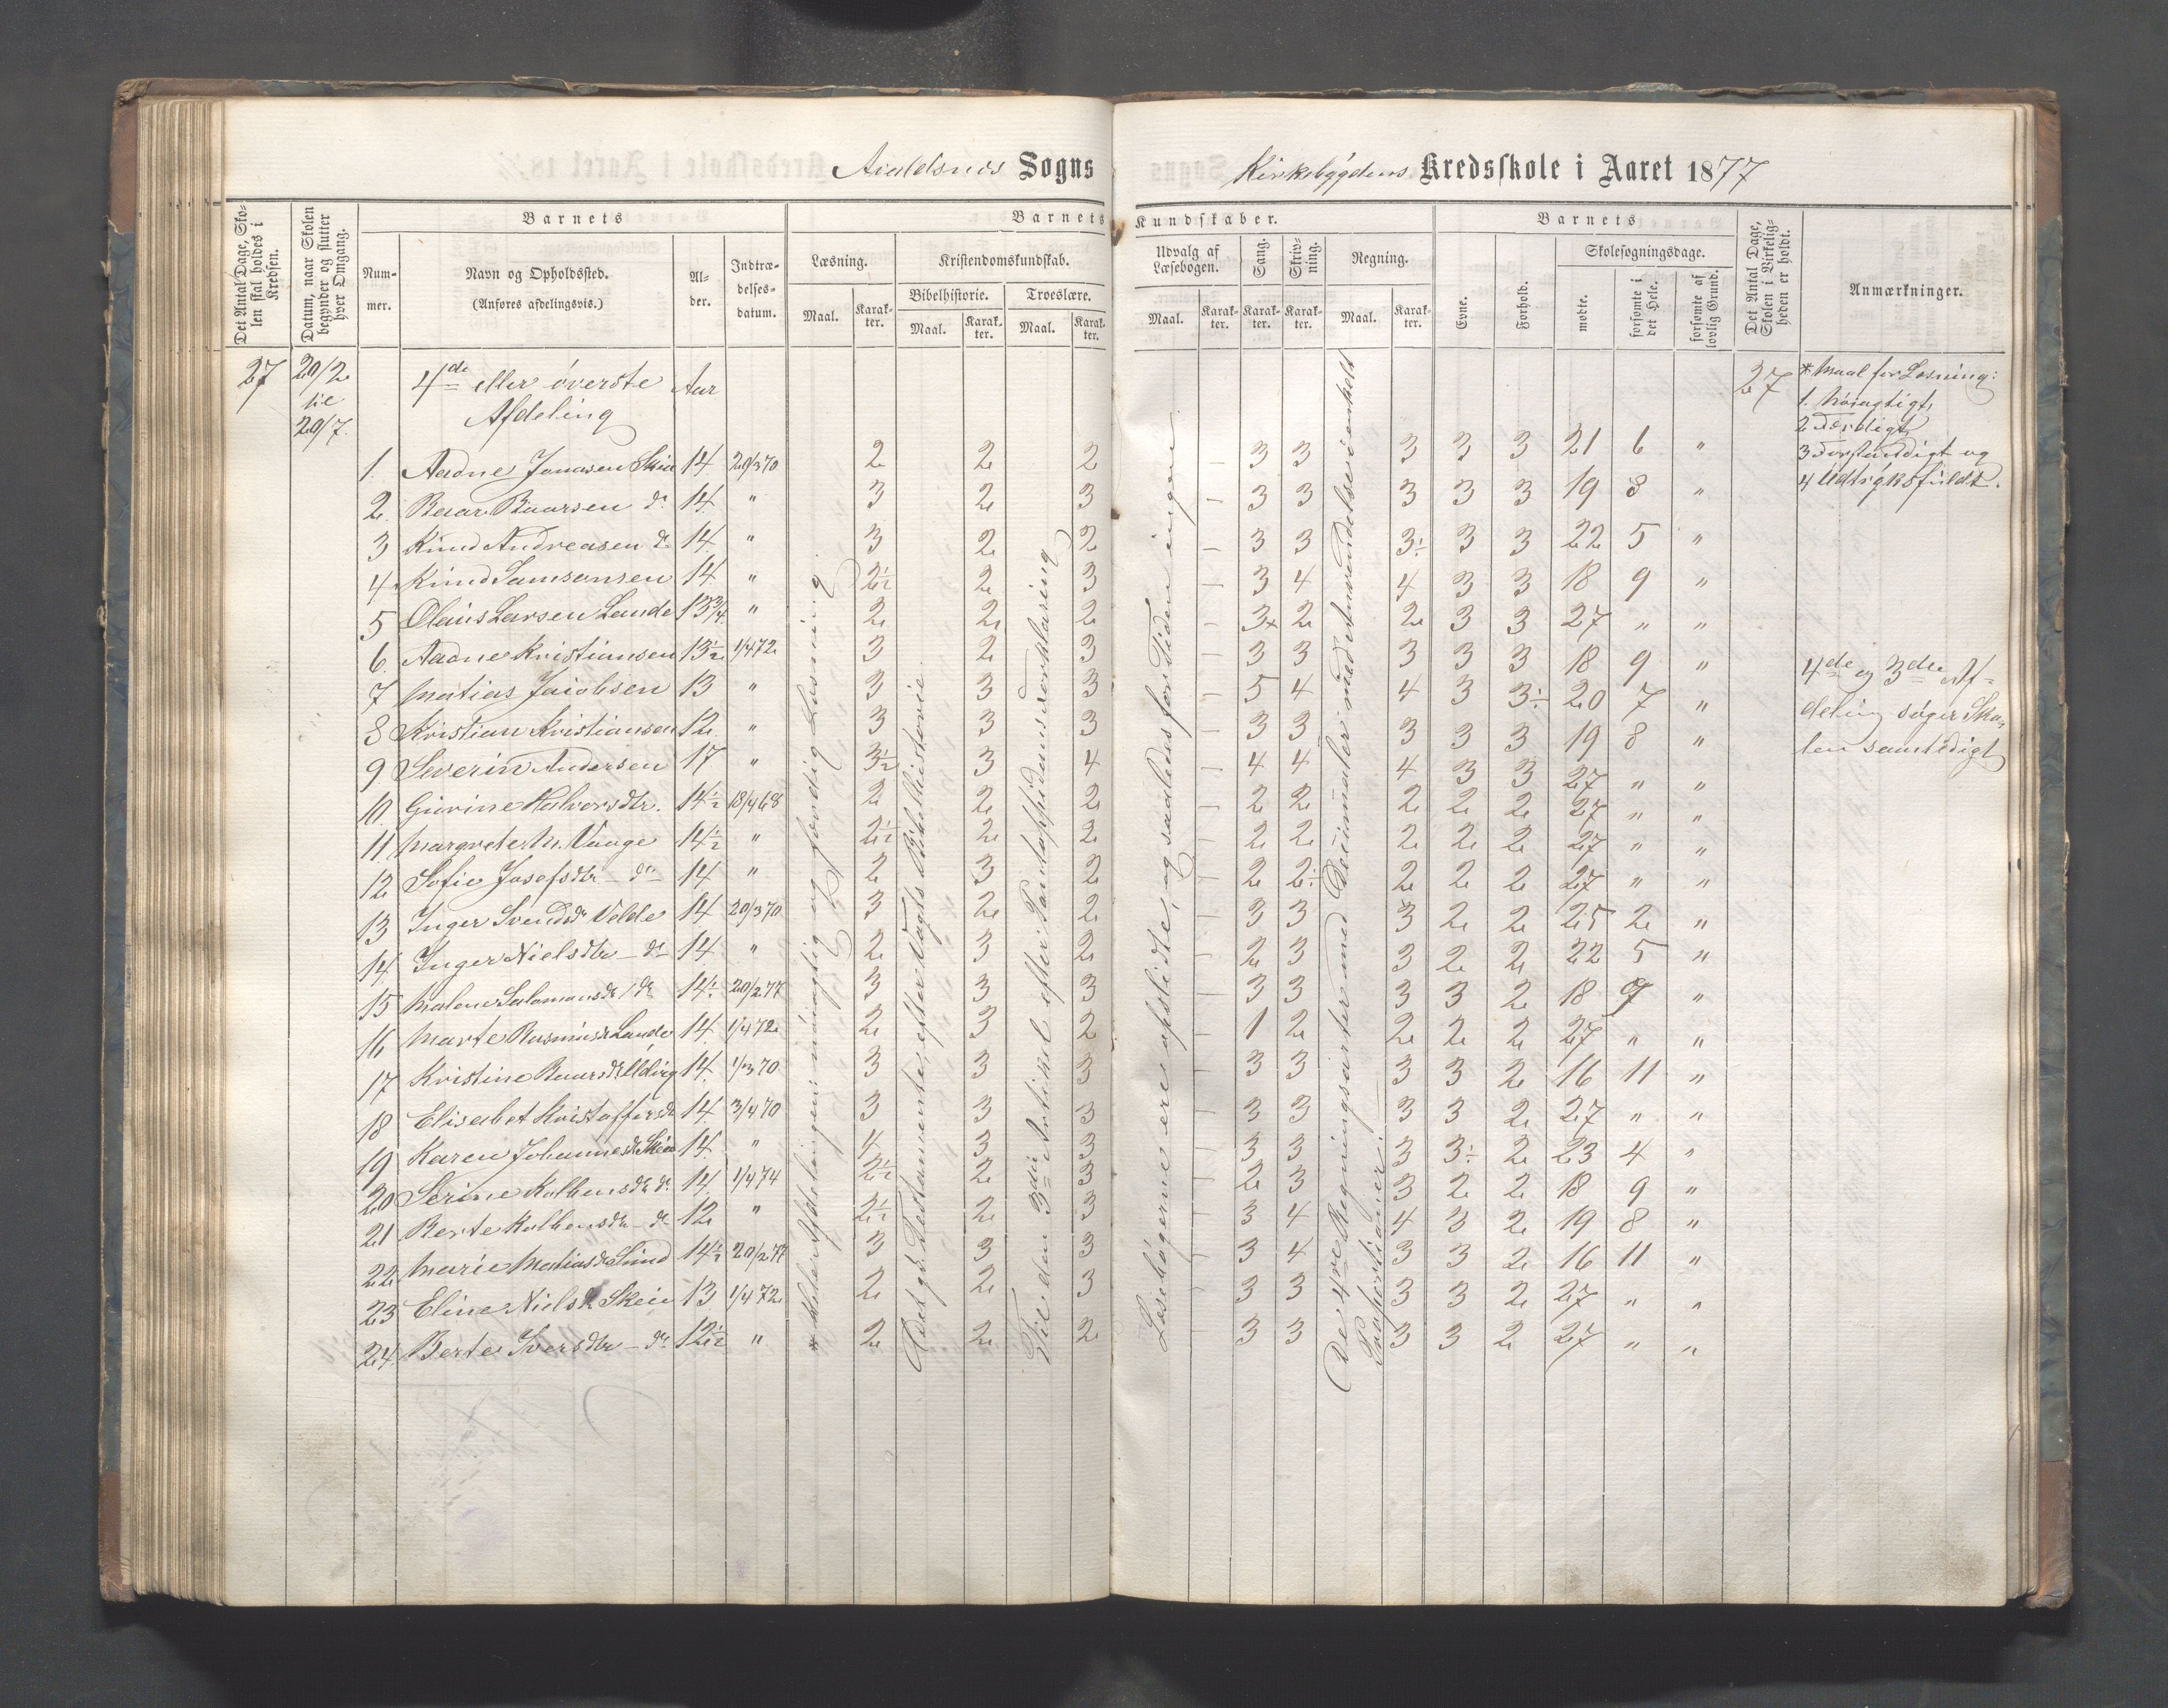 Sogns
Kirkebygdens Kredsskole i Aaret 1877
Det Antal Dage, Skolen skal holdes i Kredsen.
Datum, naar Skolen begynder og slutter hver Omgang.
Barnets
Nummer.
Navn og Opholdssted.
(Anføres afdelingsvis.)
Alder.
Indtrædelsesdatum.
Barnets Kundskaber.
Læsning.
Maal.
Karakter.
Kristendomskundskab.
Bibelhistorie.
Maal.
Karakter.
Troeslære.
Maal.
Karakter.
Udvalg af Læsebogen.
Maal.
Karakter.
Sang.
Karakter.
Skrivning.
Karakter.
Regning.
Maal.
Karakter.
Barnets
Evne.
Forhold.
Skolesøgningsdage.
mødte.
forsømte i det Hele.
forsømte af lovlig Grund.
Det Antal Dage, Skolen i Virkeligheden er holdt.
Anmærkninger.
27 20/2 til 20/7. 4de eller øverste Afdeling Aar 27
1. Aadne Jonassen Skeie 14 20/3 70 2 2 2 - 3 3 3 3 3 21 6 "
2. Baar Baarsen do 14 " 3 2 3 - 3 3 3 3 3 19 8 "
3 Knud Andreasen do 14 " 3 2 2 - 3 3 3÷ 3 3 22 5 "
4 Knud Samsonsen 14 " 2½ 2 3 - 3 4 4 3 3 18 9 "
5 Olaus Larsen Lande 13¾ " 2 2 2 - 3x 2 2 3 3 27 " "
6 Aadne Kristiansen 13½ 1/4 72 3 2 3 - 3 3 3 3 3 18 9 "
7 Matias Jacobsen 13 " 3 3 3 - 5 4 4 3 3÷ 20 7 "
8 Kristian Kristiansen 12 " 3 3 3 - 3 3 3 3 3 19 8 "
9 Severin Andersen 17 " 3½ 3 4 - 4 4 4 3 3 27 " "
10 Gurine Halvorsdtr. 14½ 18/4 68 2 2 2 - 2 2 2 2 2 27 " "
11 Margrete M. Vaage 14½ " 2½ 2 2 - 2 2 2 2 2 27 " "
12 Sofie Josefsdtr - do 14 " 2 3 2 - 2 2÷ 2 2 2 27 " "
13 Inger Svendsdr Velde 14 20/3 70 3 2 2 - 3 3 3 2 2 25 2 "
14 Inger Nielsdtr - do 14 " 2 3 2 - 2 3 3 2 2 22 5 "
15 Malene Salamonsdr do 14½ 20/2 77 3 3 3 - 3 3 3 3 2 18 9 "
16 Marte Rasmusdr Lande 14 1/4 72 2 3 2 - 1 2 2 2 2 27 " "
17 Kristine Baarsdr Udvig 14 1/3 70 3 3 3 - 3 3 3 3 2 16 11 "
18 Elisabet Kristoffersdr 14 3/4 70 3 3 3 - 3 3 3 3 2 27 " "
19 Karen Johannesdr Skeie 14 " 4 3 3 - 3 3 3 3÷ 2 23 4 "
20 Serine Kolbensdr do 14 1/4 74 2½ 2 3 - 2 3 3 2 2 18 9 "
21 Berte Kolbensdr - do 12 " 2½ 2 3 - 3 4 4 3 2 19 8 "
22 Marie Matiasdr Sund 14½ 20/2 77 3 3 3 - 3 4 3 3 2 16 11 "
23 Eline Nielsdr Skeie 13 1/4 72 2 2 3 - 3 3 3 3 2 27 " "
24 Berte Iversdtr - do 12½ " 2 2 2 - 3 3 3 3 2 27 " "
* Hele Afdelingen: nøiagtig og færdig Læsning
Det gl. Testamente, efter Vogts Bibelhistorie.
Til den 3die Artikel efter Pontoppidans Forklaring
Læsebøgerne ere opslidte, og saaledes for Tiden ingen
De 4re Regningsarter med Decimaler med Anvendelse i enkelt
Proportioner.
* Maal for Læsning:
1. Nøiagtigt,
2 Færdigt,
3 Forstandigt og
4 Udtryksfuldt.
4de og 3die Af-
deling søger Sko-
len samtidigt